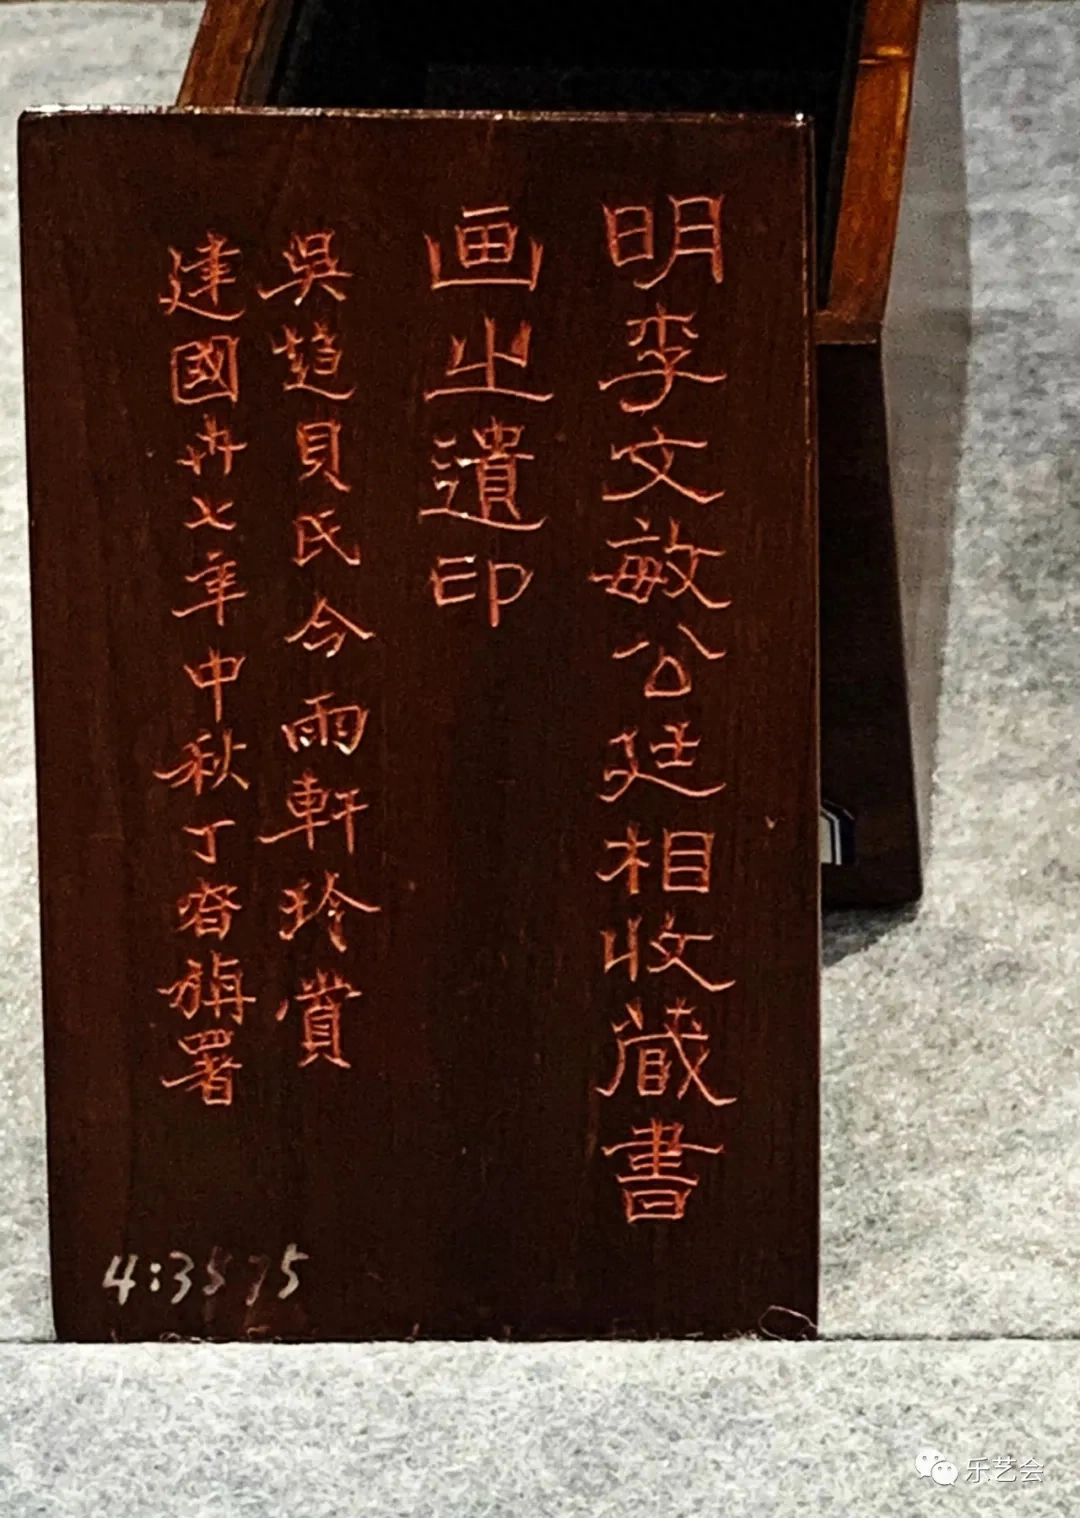 明李文敏公廷相收蔵書
画之遺印
吳趨貝氏今雨軒珍賞
建國卅七年中秋丁昚旃署
4:3575
乐艺会